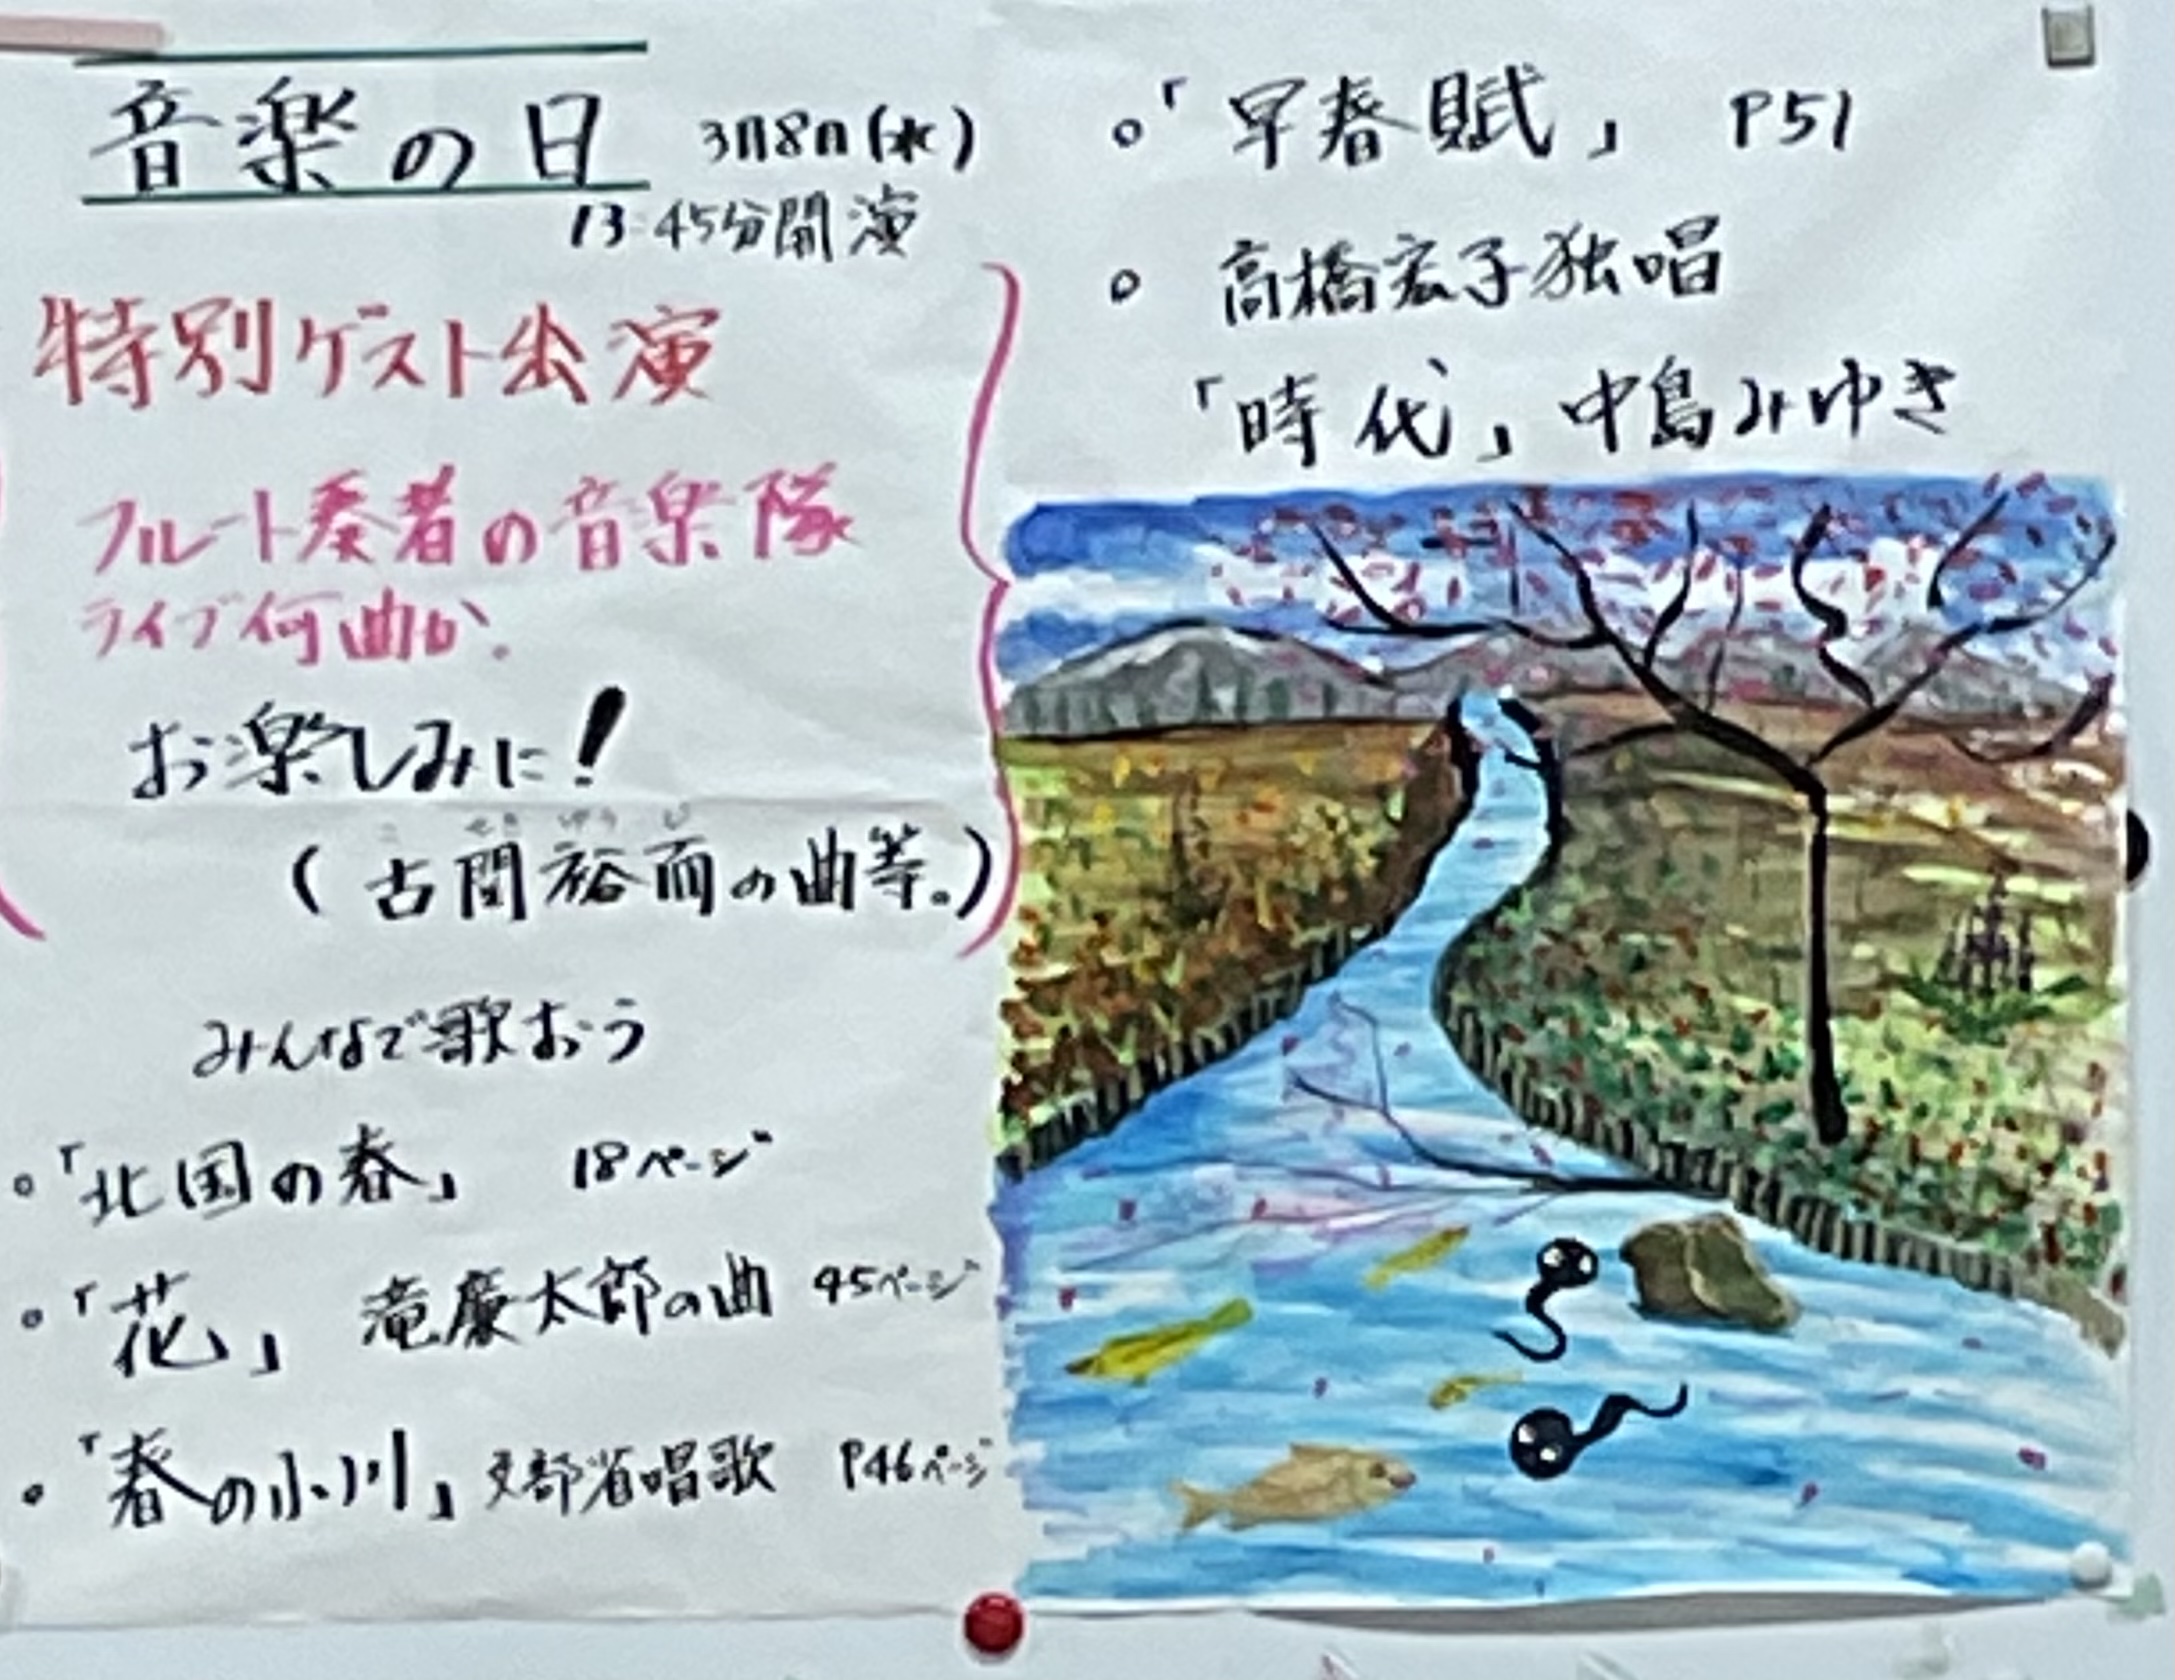 音楽の日 3月8日(水)
13:45分開演
特別ゲスト出演
フルート奏者の音楽隊
ライブ何曲か.
お楽しみに!
こ せき ゆう じ
(古関裕而の曲等。)
みんなで歌おう
。「北国の春」 18ページ
。「花」 滝廉太郎の曲 45ページ
。「春の小川」文部省唱歌 P46ページ
。「早春賦」 P51
。 高橋宏子独唱
「時代」中島みゆき